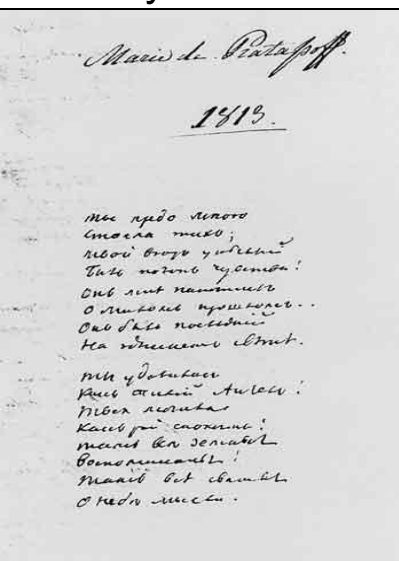 Marie de
1813.
Ты предо мною
Стояла тихо;
Твой взоръ унылый
Былъ полонъ чувства!
Онъ мнѣ напомнилъ
О миломъ прошломъ..
Онъ былъ послѣдній
На здѣшнемъ свѣтѣ.
Ты удалилась
Какъ тихій Ангелъ!
Твоя могила
Какъ рай спокойна!
Тамъ всѣ земныя
Воспоминанья!
Тамъ всѣ святыя
О небѣ мысли.